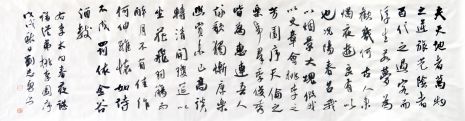 夫天地者萬物
之逆旅光陰者
百代之過客而
浮生若夢為
歡幾何古人秉
燭夜遊良有以
也況陽春召我
以煙景大塊假我
以文章會桃李之
芳園序天倫之
樂事群季俊秀
皆為惠連吾人
詠歌獨慚康樂
幽賞未已高談
轉清開瓊筵以
坐花飛羽觴而
醉月不有佳作
何伸雅懷如詩
不成罰依金谷
酒數
右李太白春夜讌
從弟桃李園序
戊戌秋日劉志